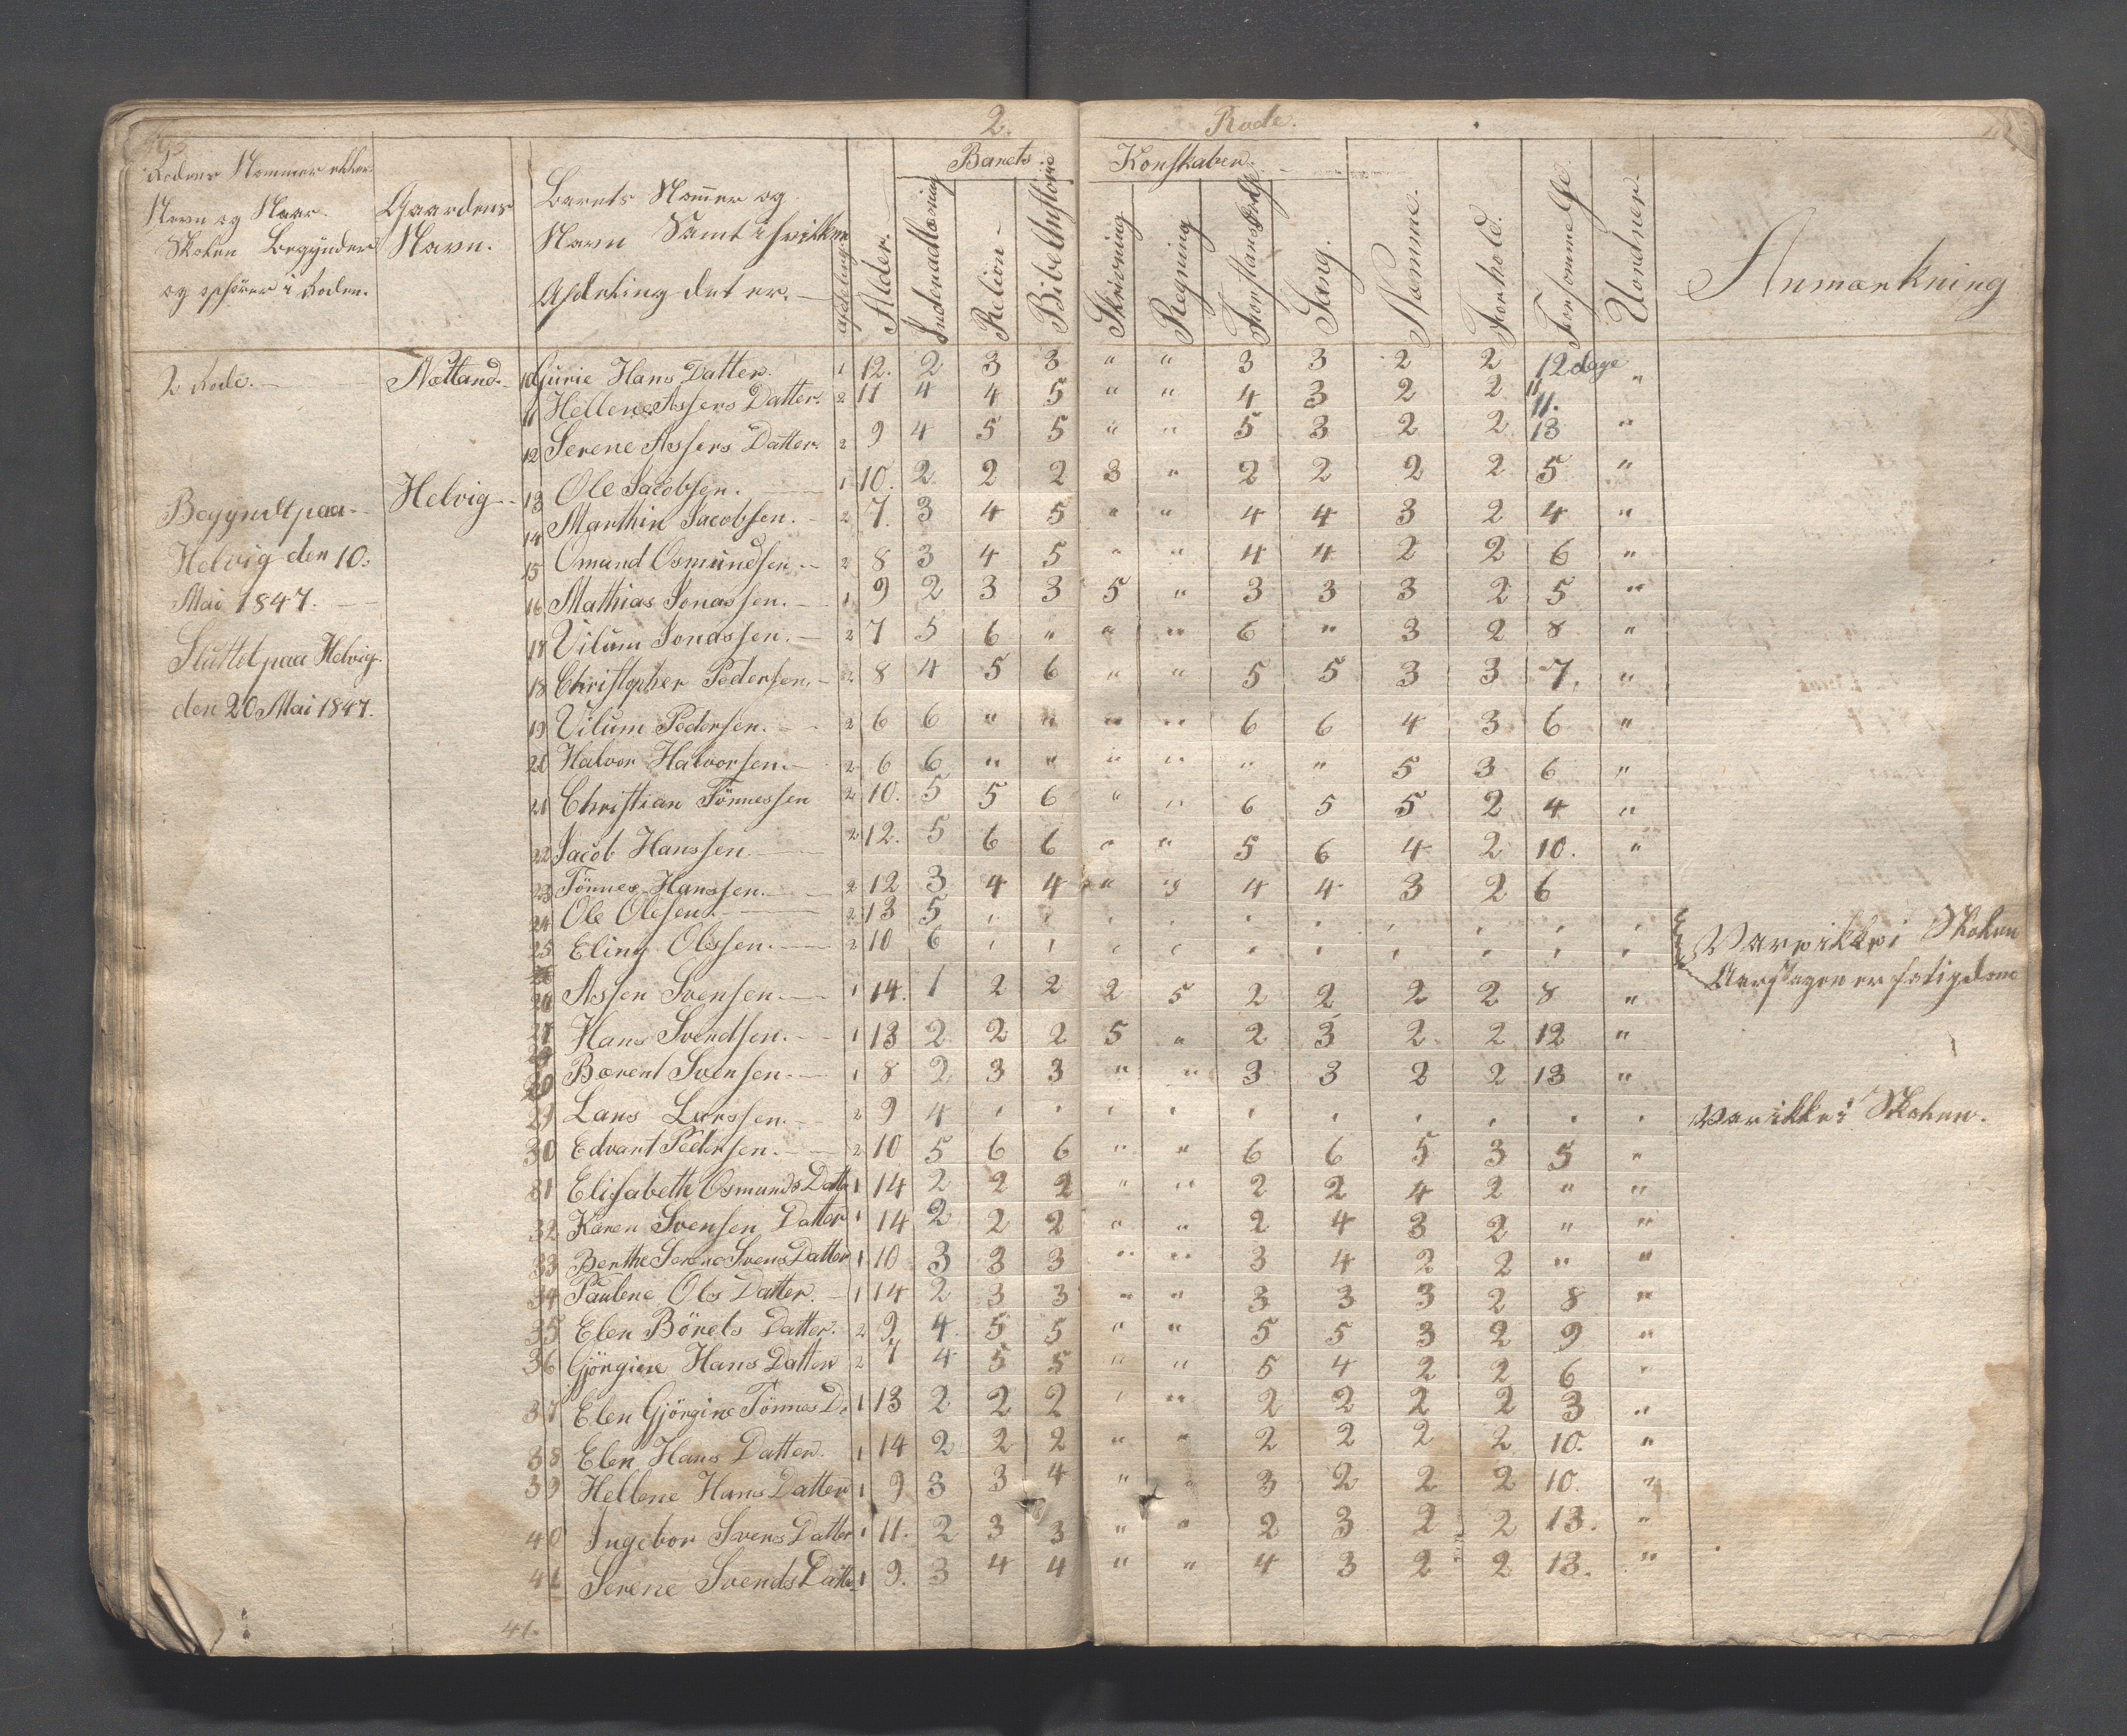 2. Rode.
Rodens Nommer eller Gaardens Barets Nommer og Barets Konskaber
Navn og Naar Navn. Navn Samt i hvilken
Skolen Begynder Afdeling det er.
og ophörer i Roden.
Afdeling Alder. Indenadlæsning Relion Bibelhistorie Skrivning Regning Sang. Næmme. Forhold. Forsømmelse Uordner. Anmærkning
2 Rode. Nætland. 10 Gurie Hans Datter. 1 12. 2 3 3 " " 3 3 2 2 12 dage
11 Hellene Assers Datter. 2 11 4 4 5 " " 4 3 2 2 11. "
12 Serene Assers Datter. 2 9 4 5 5 " " 5 3 2 2 13 "
Helvig 13 Ole Jacobsen. 1 10. 2 2 2 3 " 2 2 2 2 5 "
Begyndt paa 14 Marthin Jacobsen. 2 7. 3 4 5 " " 4 4 3 2 4 "
Helvig den 10. 15 Omund Osmundsen 2 8 3 4 5 " " 4 4 2 2 6 "
Mai 1847. 16 Mathias Jonassen. 1 9 2 3 3 5 " 3 3 3 2 5 "
Sluttet paa Helvig 17 Vilum Jonassen. 2 7 5 6 " " " 6 " 3 2 8 "
den 20 Mai 1847. 18 Christopher Pedersen. 2 8 4 5 6 " " 5 5 3 3 7. "
19 Vilum Pedersen. 2 6 6 " " " " 6 6 4 3 6 "
20 Halvor Halvorsen. 2 6 6 " " " " " " 5 3 6 "
21 Christian Tönnessen 2 10. 5 5 6 " " 6 5 5 2 4 "
22 Jacob Hanssen. 2 12. 5 6 6 " " 5 6 4 2 10. "
23 Tönnes Hanssen. 2 12 3 4 4 " " 4 4 3 2 6
24 Ole Olesen. 2 13 5 Var ikke i Skolen
25 Eling Olssen. 2 10 6 Aarsagen er fatigdom
26 Assen Svensen. 1 14. 1 2 2 2 5 2 2 2 2 8 "
27 Hans Svendsen. 1 13 2 2 2 5 " 2 3 2 2 12 "
Bærent Svensen. 1 8 2 3 3 " " 3 3 2 2 13 "
29 Lars Larssen. 2 9 4 Var ikke i Skolen.
30 Edvart Pedersen. 2 10 5 6 6 " " 6 6 5 3 5 "
31 Elisabeth Osmunds Datter 1 14 2 2 2 " " 2 2 4 2 " "
32 Karen Svensen Datter 1 14 2 2 2 " " 2 4 3 2 " "
33 Berthe Serene Svens Datter 1 10 3 3 3 " " 3 4 2 2 " "
34 Paulene Ols Datter. 1 14 2 3 3 " " 3 3 3 2 8 "
35 Elen Börels Datter. 2 9 4 5 5 " " 5 5 3 2 9 "
36 Gjörgine Hans Datter 2 7 4 5 5 " " 5 4 2 2 6 "
37 Elen Gjörgine Tönnes D. 1 13 2 2 2 " " 2 2 2 2 3 "
38 Elen Hans Datter. 1 14 2 2 2 " " 2 2 2 2 10. "
39 Hellene Hans Datter 1 9 3 3 4 " " 3 2 2 2 10. "
40 Ingebor Svens Datter 1 11. 2 3 3 " " 2 3 2 2 13. "
41 Serene Svends Datter 1 9. 3 4 4 " " 4 3 2 2 13. "
41.